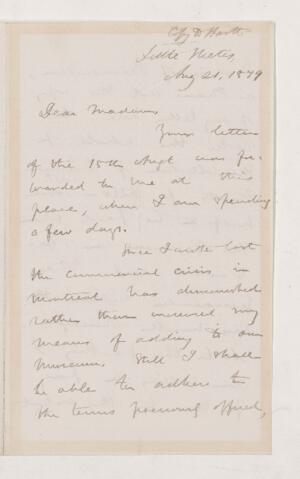 Little Metis,
Aug 21, 1879
Dear Madam,
Your letter
of the 15th August was for-
warded to me at this
place, where I am spending
a few days.
Since I wrote last
the commercial crisis in
Montreal has diminished
rather than increased my
means of adding to our
Museum. Still I shall
be able to adhere to
the terms previously offered,